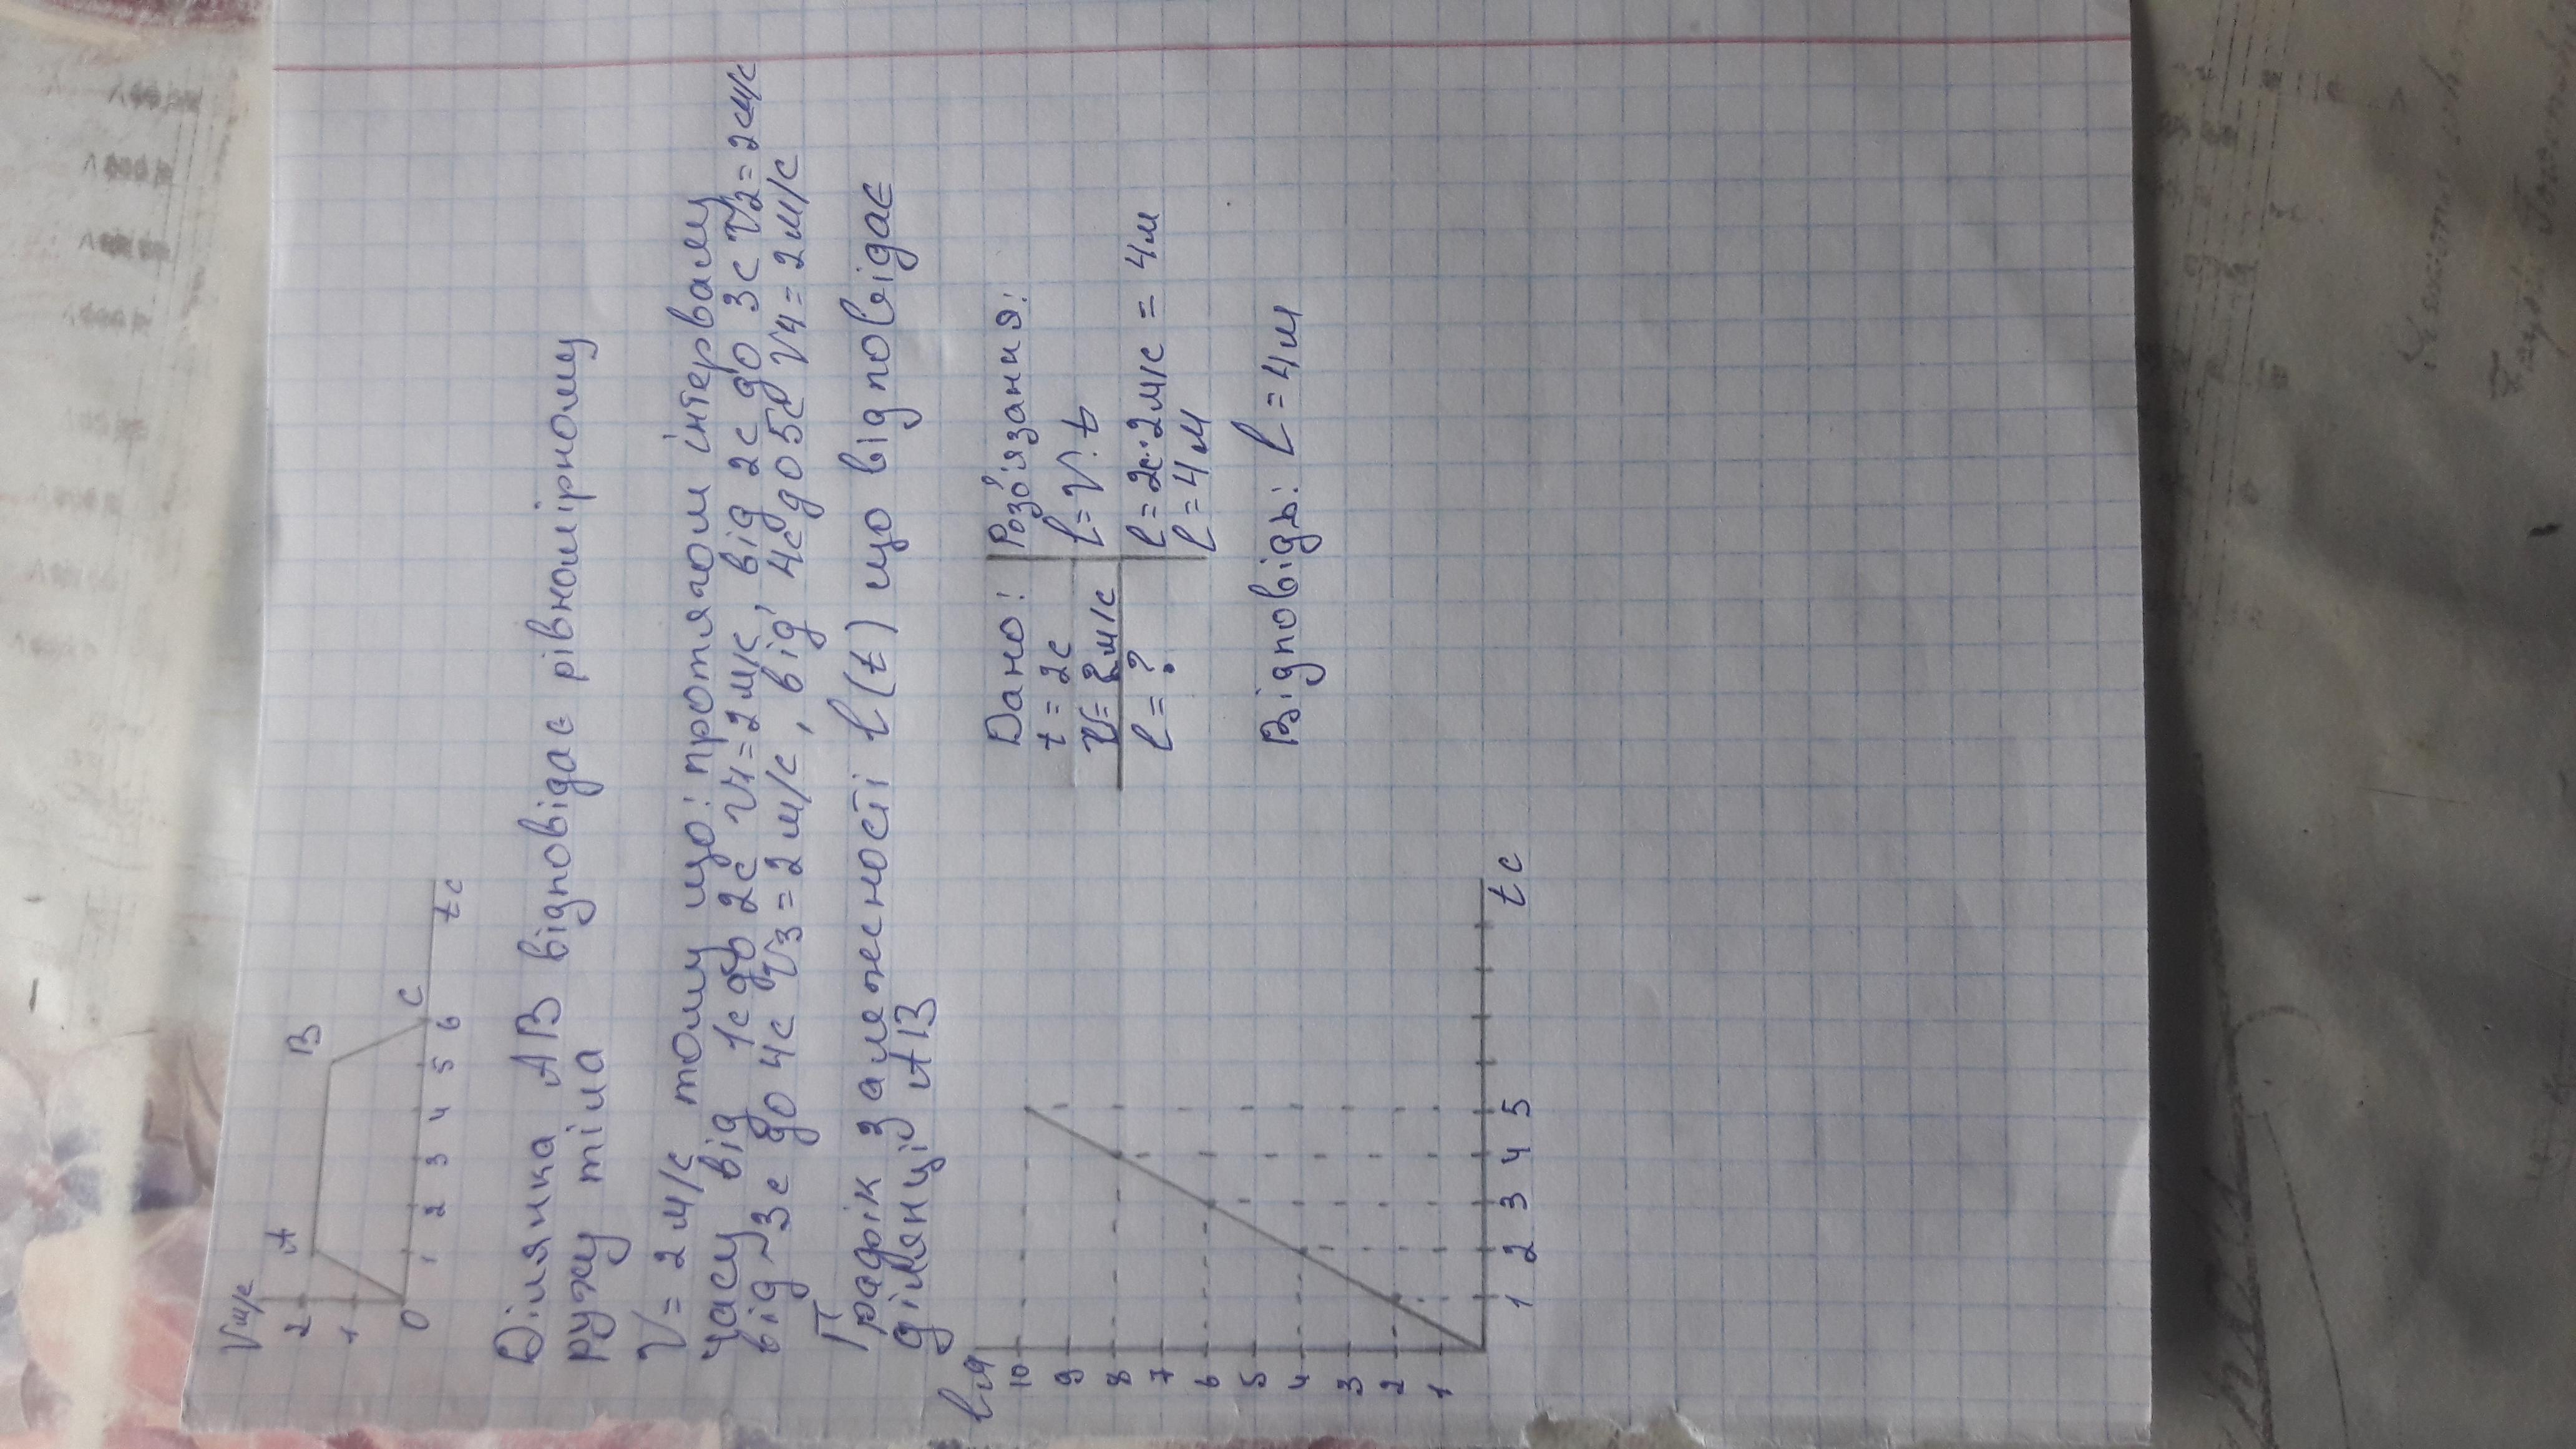 V м/с
2
1
0
A
B
C
1 2 3 4 5 6
t c
Ділянка АВ відповідає рівномірному
руху тіла
V = 2 м/с тому що: протягом інтервалу
часу від 1с до 2с V1 = 2 м/с, від 2с до 3с V2 = 2 м/с
від 3с до 4с V3 = 2 м/с, від 4с до 5с V4 = 2 м/с
Графік залежності l(t) що відповідає
ділянці АВ
l м
10
9
8
7
6
5
4
3
2
1
1 2 3 4 5
t c
Дано:
t = 2c
V = 2 м/с
l = ?
Розв'язання:
l = V · t
l = 2с · 2 м/с = 4 м
l = 4 м
Відповідь: l = 4 м